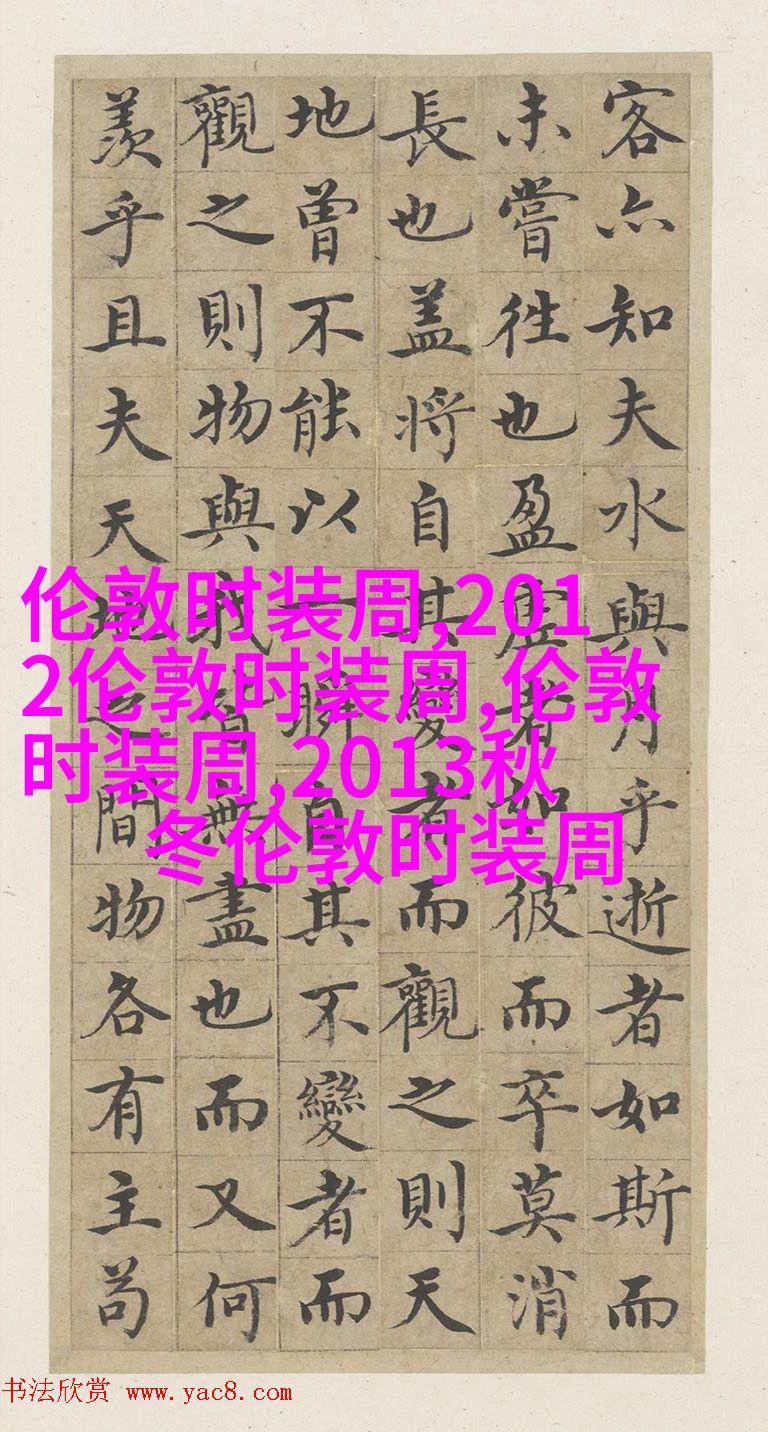 客亦知夫水與月乎逝者如斯而
未嘗往也盈虛者如彼而卒莫消
長也盖将自其變者而觀之則天
地曾不能以一瞬自其不變者而
觀之則物與我皆無盡也而又何
羨乎且夫天地之間物各有主苟
伦敦时装周,201
2伦敦时装周,伦敦
时装周,2013秋
冬伦敦时装周
书法欣赏 www.yac8.com